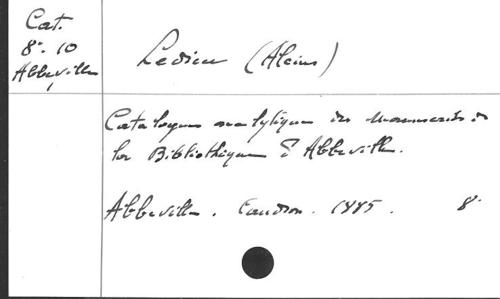 Cat.
8°. 10
Abbeville
Ledieu (Alcius)
Catalogue analytique des Manuscrits de
la Bibliothèque d'Abbeville.
Abbeville. Caudron. 1885. 8°